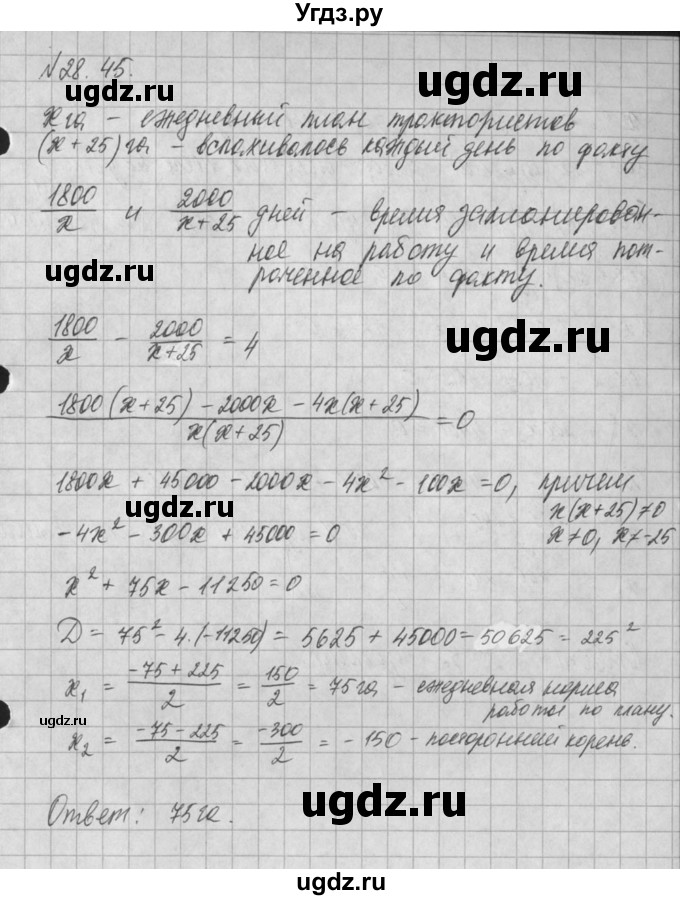 Угдз.ру
№28.45.
ugdz.ru
ugdz.ru
x га – ежедневный план трактористов
(x + 25) га – вспахивалось каждый день по факту
1800/x и 2000/(x+25) дней – время запланирован-
ugdz.ru
ное на работу и время пот-
раченное по факту.
ugdz.ru
1800/x - 2000/(x+25) = 4
ugdz.ru
(1800(x+25) - 2000x - 4x(x+25))/(x(x+25)) = 0
1800x + 45000 - 2000x - 4x² - 100x = 0, причем
ugdz.ru
x(x+25)≠0
-4x² - 300x + 45000 = 0
x≠0, x≠-25
x² + 75x - 11250 = 0
ugdz.ru
Д = 75² - 4·(-11250) = 5625 + 45000 = 50625 = 225²
x₁ = (-75 + 225)/2 = 150/2 = 75 га – ежедневная норма
работы по плану.
ugdz.ru
x₂ = (-75 - 225)/2 = -300/2 = -150 – посторонний корень.
ugdz.ru
Ответ: 75 га.
ugdz.ru
ugdz.ru